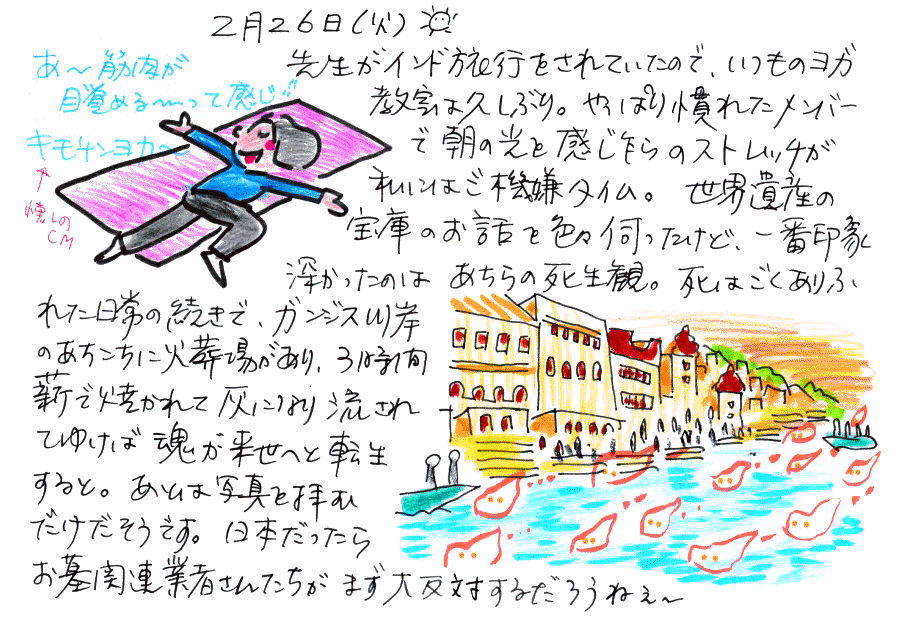 2月26日(火)
あ〜筋肉が
目覚める〜〜って感じ!!
キモチンヨカ〜
↑
懐しの
CM
先生がインド旅行をされていたので、いつものヨガ
教室は久しぶり。やっぱり慣れたメンバー
で朝の光を感じながらのストレッチが
れいにはご機嫌タイム。世界遺産の
宝庫のお話を色々伺ったけど、一番印象
深かったのはあちらの死生観。死はごくありふ
れた日常の続きで、ガンジス川岸
のあちこちに火葬場があり、3時間
薪で焼かれて灰になり流され
てゆけば魂が来世へと転生
すると。あとは写真を拝む
だけだそうです。日本だったら
お墓関連業者さんたちがまず大反対するだろうねぇ〜